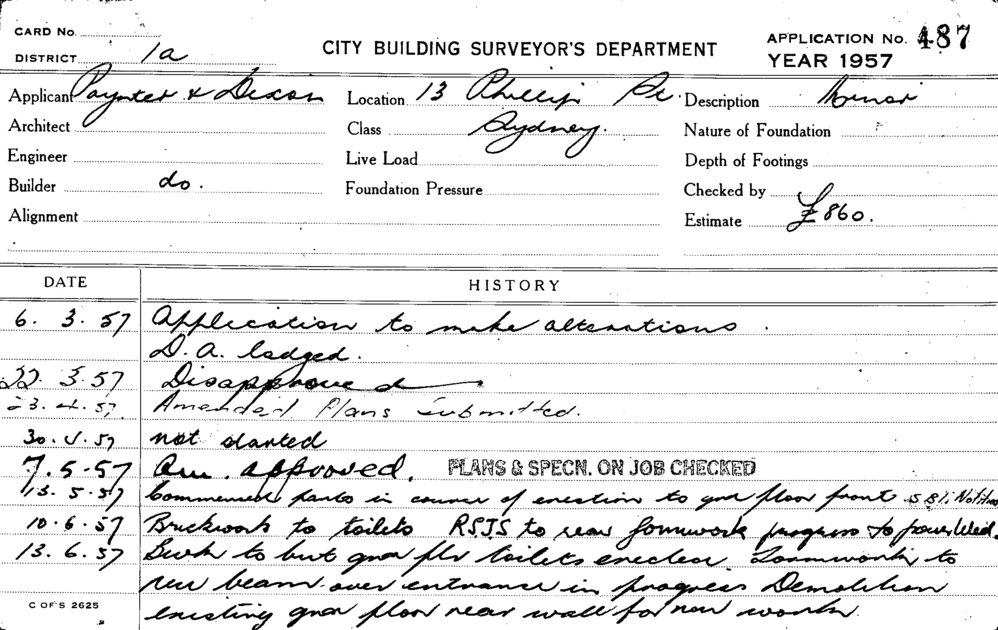 CARD No.
DISTRICT 1a
CITY BUILDING SURVEYOR'S DEPARTMENT
APPLICATION No. 487
YEAR 1957
Applicant Paynter & Dixon
Location 13 Phillip St.
Description Minor
Architect
Class Sydney.
Nature of Foundation
Engineer
Live Load
Depth of Footings
Builder do.
Foundation Pressure
Checked by
Alignment
Estimate £860.
DATE HISTORY
6. 3. 57 Application to make alterations.
D.A. lodged.
22. 3. 57 Disapproved
23. 4. 57. Amended Plans Submitted.
30. 4. 57 not started
7. 5. 57 Am. approved. PLANS & SPECN. ON JOB CHECKED
13. 5. 57 Commenced parts in course of erection to gnd floor front
10. 6. 57 Brickwork to toilets RSJS to rear formwork progress to
13. 6. 57 to gnd flr toilets erected Formwork to
rear beam over entrance in progress Demolition
existing gnd floor rear wall for new works.
C OF S 2625